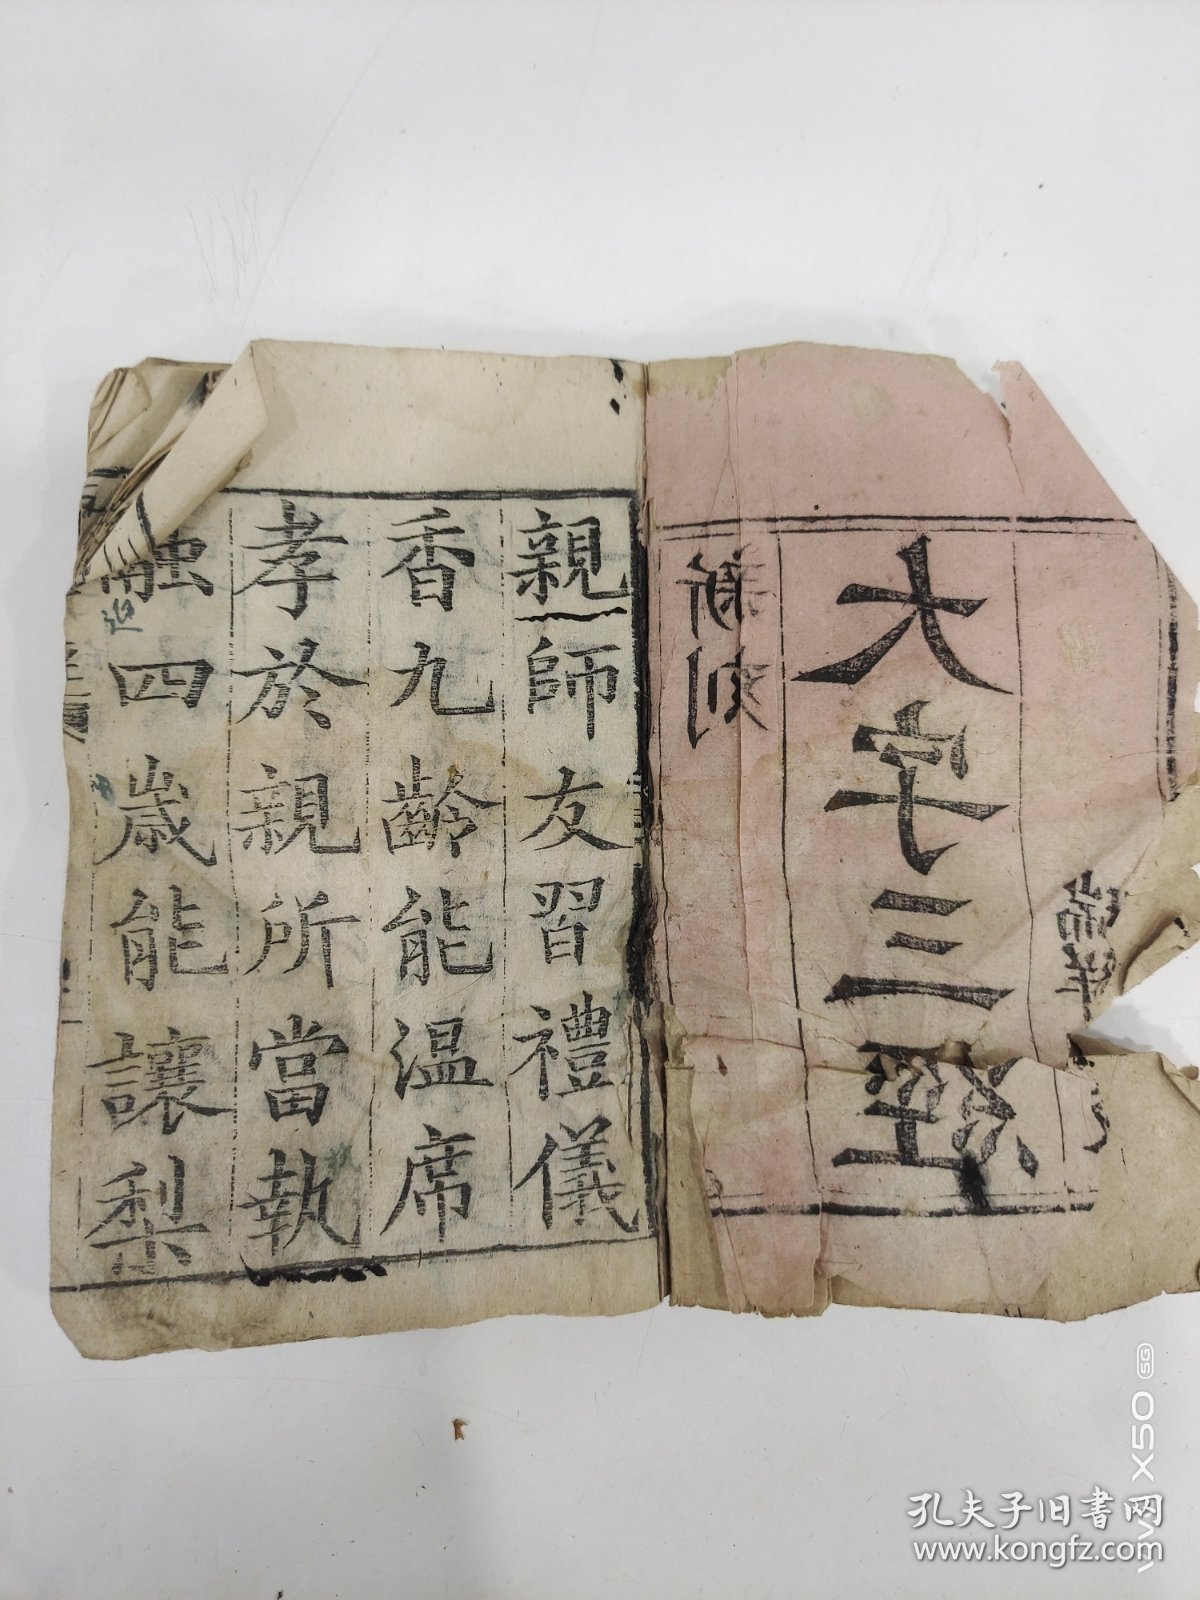 新刻
大字三經
親師友習禮儀
香九齡能温席
孝於親所當執
融四歲能讓梨
孔夫子旧書网
www.kongfz.com
VIVO X50 5G